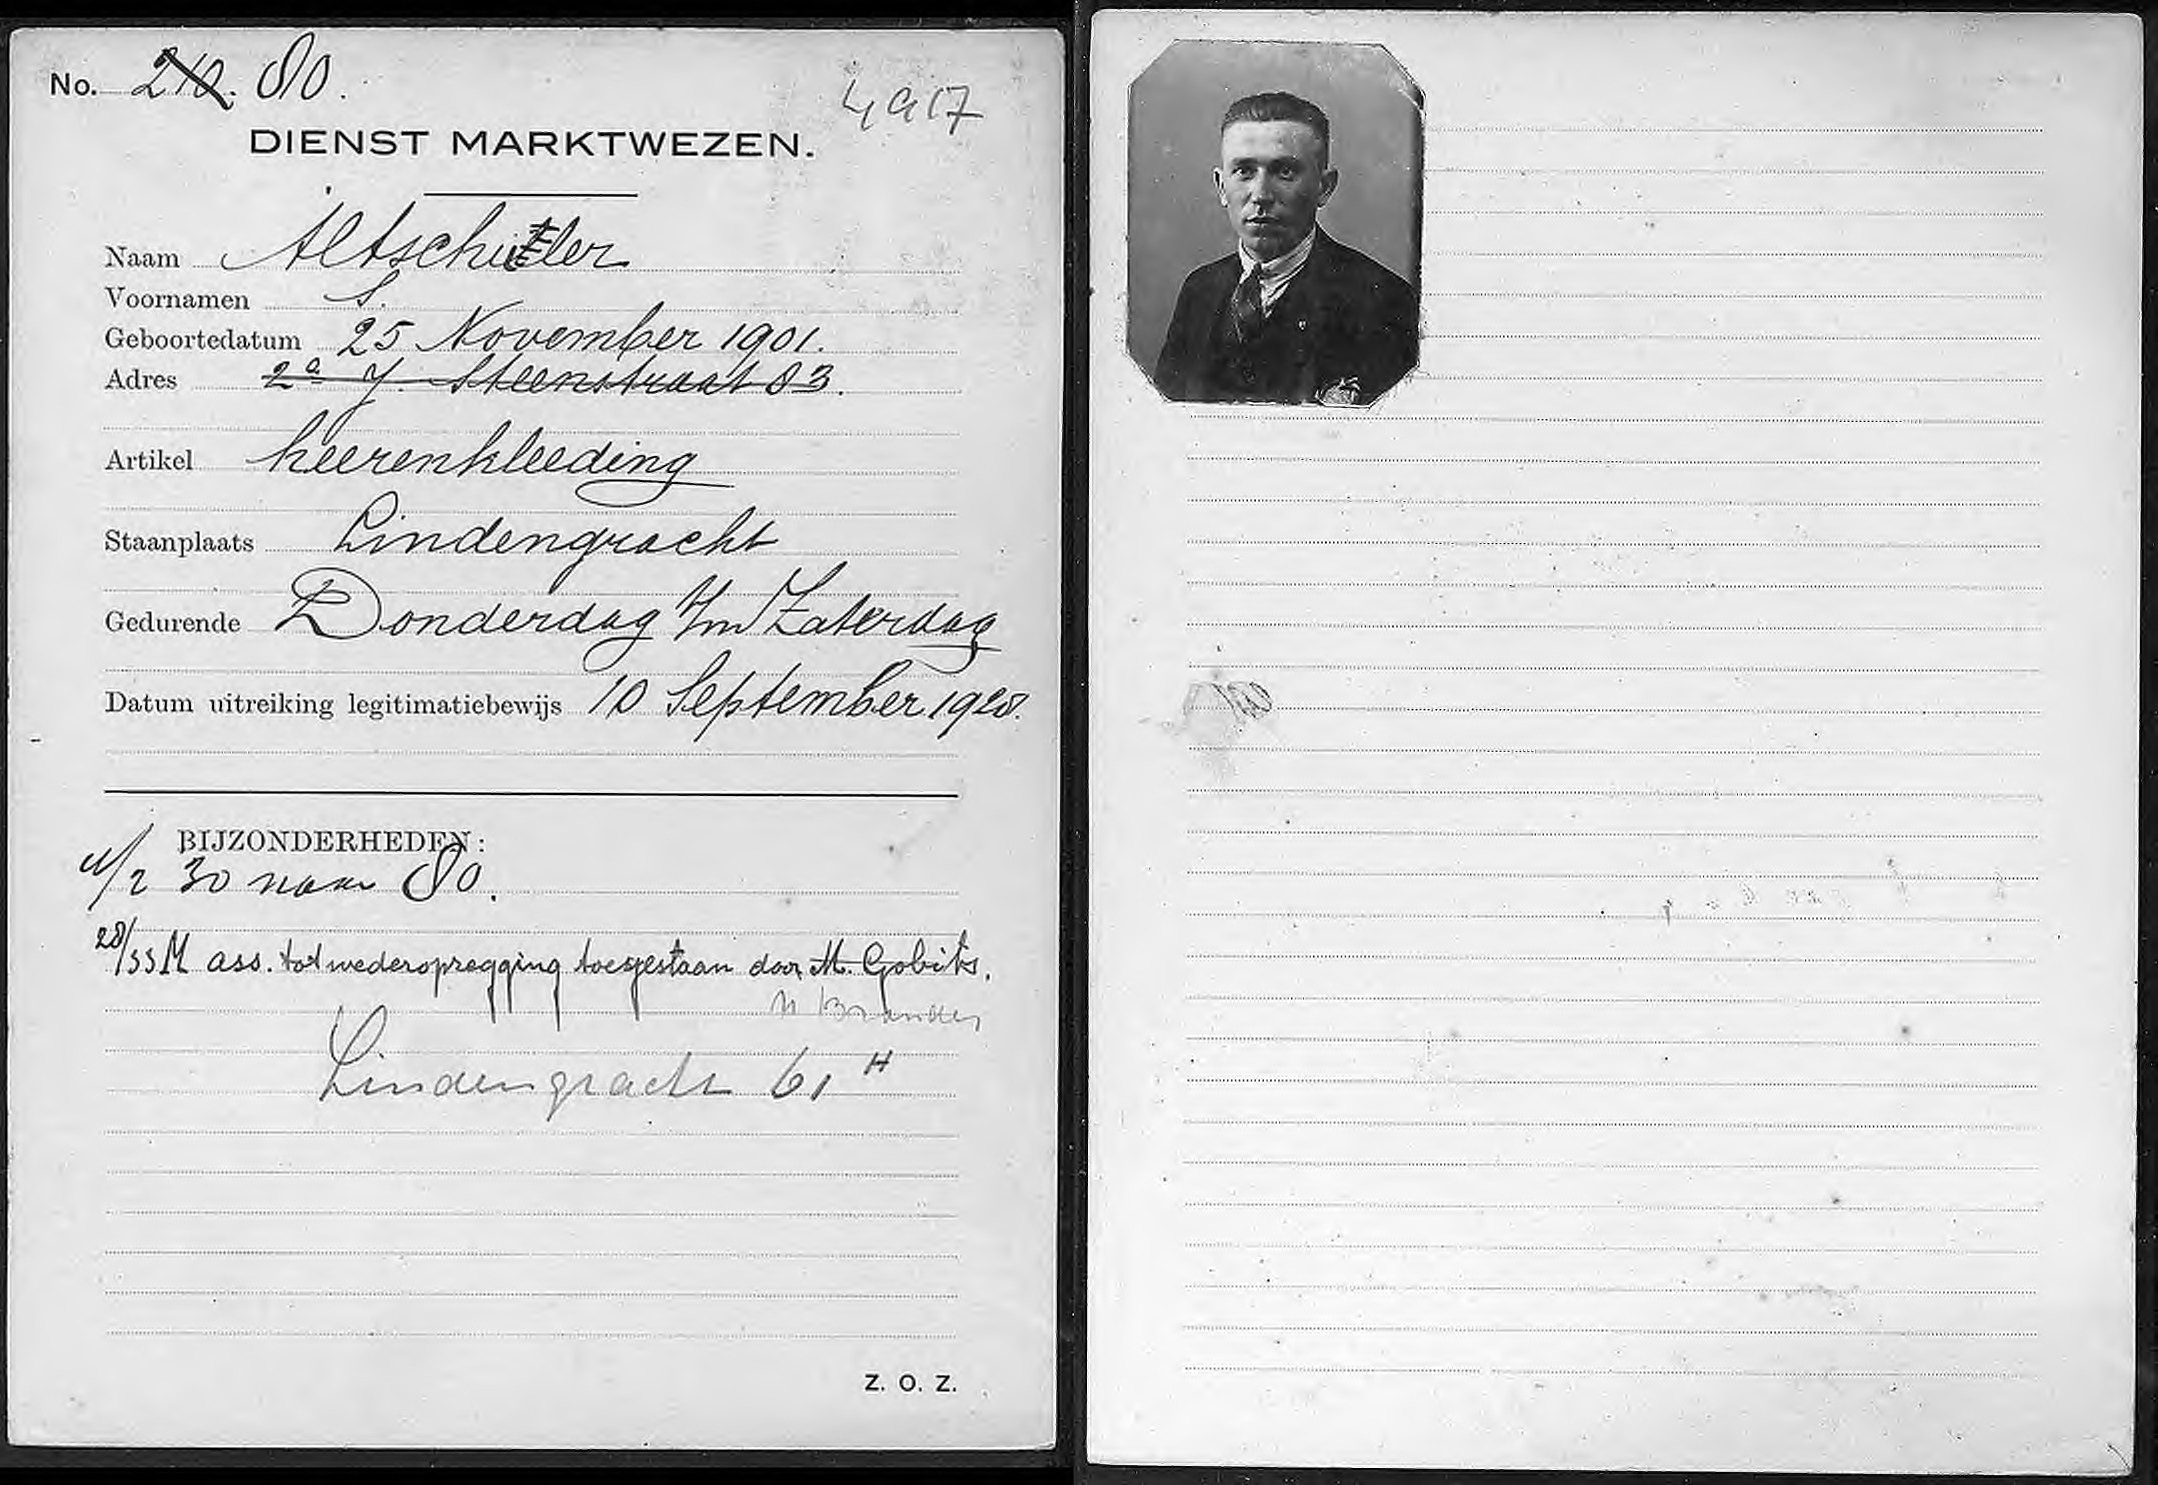 No. 210. 80.
4917
DIENST MARKTWEZEN.
Naam Altschitler
Voornamen S.
Geboortedatum 25 November 1901.
Adres 2e J. Steenstraat 83.
Artikel heerenkleeding
Staanplaats Lindengracht
Gedurende Donderdag t/m Zaterdag
Datum uitreiking legitimatiebewijs 10 September 1928.
BIJZONDERHEDEN:
30 naar 80.
ass. tot wederopzegging toegestaan door M. Gobits.
Brander
Lindengracht 61 H
Z. O. Z.